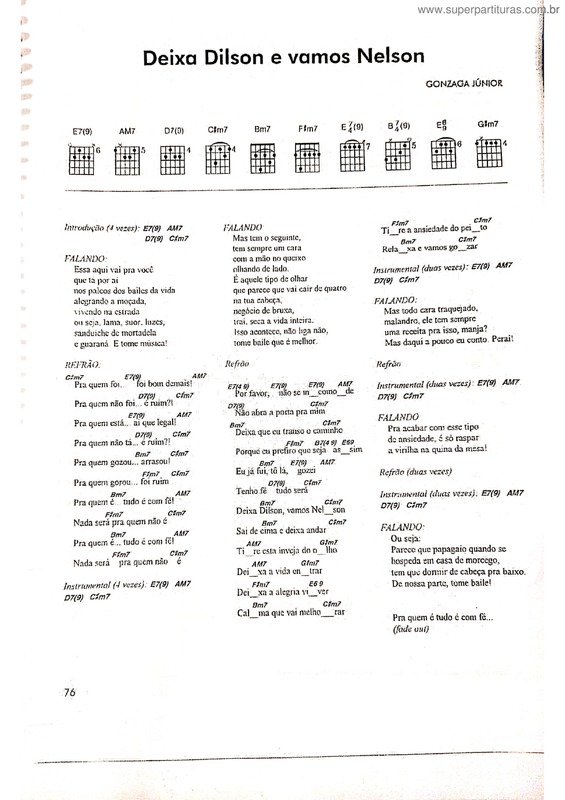 www.superpartituras.com.br
Deixa Dilson e vamos Nelson
GONZAGA JÚNIOR
E7(9) AM7 D7(9) C#m7 Bm7 F#m7 E 7/4(9) B 7/4(9) E6/9 G#m7
6 5 4 4 7 5 4
Introdução (4 vezes): E7(9) AM7
D7(9) C#m7
FALANDO:
Essa aqui vai pra você
que tá por aí
nos palcos dos bailes da vida
alegrando a moçada,
vivendo na estrada
ou seja, lama, suor, luzes,
sanduíche de mortadela
e guaraná. E tome música!
REFRÃO:
C#m7 E7(9) AM7
Pra quem foi... foi bom demais!
D7(9) C#m7
Pra quem não foi... é ruim?!
E7(9) AM7
Pra quem está... aí que legal!
D7(9) C#m7
Pra quem não tá... é ruim?!
Bm7 AM7
Pra quem gozou... arrasou!
F#m7 C#m7
Pra quem gorou... foi ruim
Bm7 AM7
Pra quem é... tudo é com fé!
F#m7 C#m7
Nada será pra quem não é
Bm7 AM7
Pra quem é... tudo é com fé!
F#m7 C#m7
Nada será pra quem não é
Instrumental (4 vezes): E7(9) AM7
D7(9) C#m7
FALANDO
Mas tem o seguinte,
tem sempre um cara
com a mão no queixo
olhando de lado.
É aquele tipo de olhar
que parece que vai cair de quatro
na tua cabeça,
negócio de bruxa,
trai, seca a vida inteira.
Isso acontece, não liga não,
tome baile que é melhor.
Refrão
E7(4 9) E7(9) E7(9) AM7
Por favor, não se in__como__de
D7(9) C#m7
Não abra a porta pra mim
Bm7 C#m7
Deixa que eu transo o caminho
F#m7 B7(4 9) E69
Porque eu prefiro que seja as__sim
Bm7 E7(9) AM7
Eu já fui, tô lá, gozei
D7(9) C#m7
Tenho fé tudo será
Bm7 C#m7
Deixa Dilson, vamos Nel__son
Bm7 E7(9) AM7
Sai de cima e deixa andar
AM7 G#m7
Ti__re esta inveja do o__lho
AM7 G#m7
Dei__xa a vida en__trar
F#m7 E6 9
Dei__xa a alegria vi__ver
Bm7 C#m7
Cal__ma que vai melho__rar
F#m7 C#m7
Ti__re a ansiedade do pei__to
Bm7 C#m7
Rela__xa e vamos go__zar
Instrumental (duas vezes): E7(9) AM7
D7(9) C#m7
FALANDO:
Mas todo cara traquejado,
malandro, ele tem sempre
uma receita pra isso, manja?
Mas daqui a pouco eu conto. Peraí!
Refrão
Instrumental (duas vezes): E7(9) AM7
D7(9) C#m7
FALANDO
Pra acabar com esse tipo
de ansiedade, é só raspar
a virilha na quina da mesa!
Refrão (duas vezes)
Instrumental (duas vezes): E7(9) AM7
D7(9) C#m7
FALANDO:
Ou seja:
Parece que papagaio quando se
hospeda em casa de morcego,
tem que dormir de cabeça pra baixo.
De nossa parte, tome baile!
Pra quem é tudo é com fé...
(fade out)
76